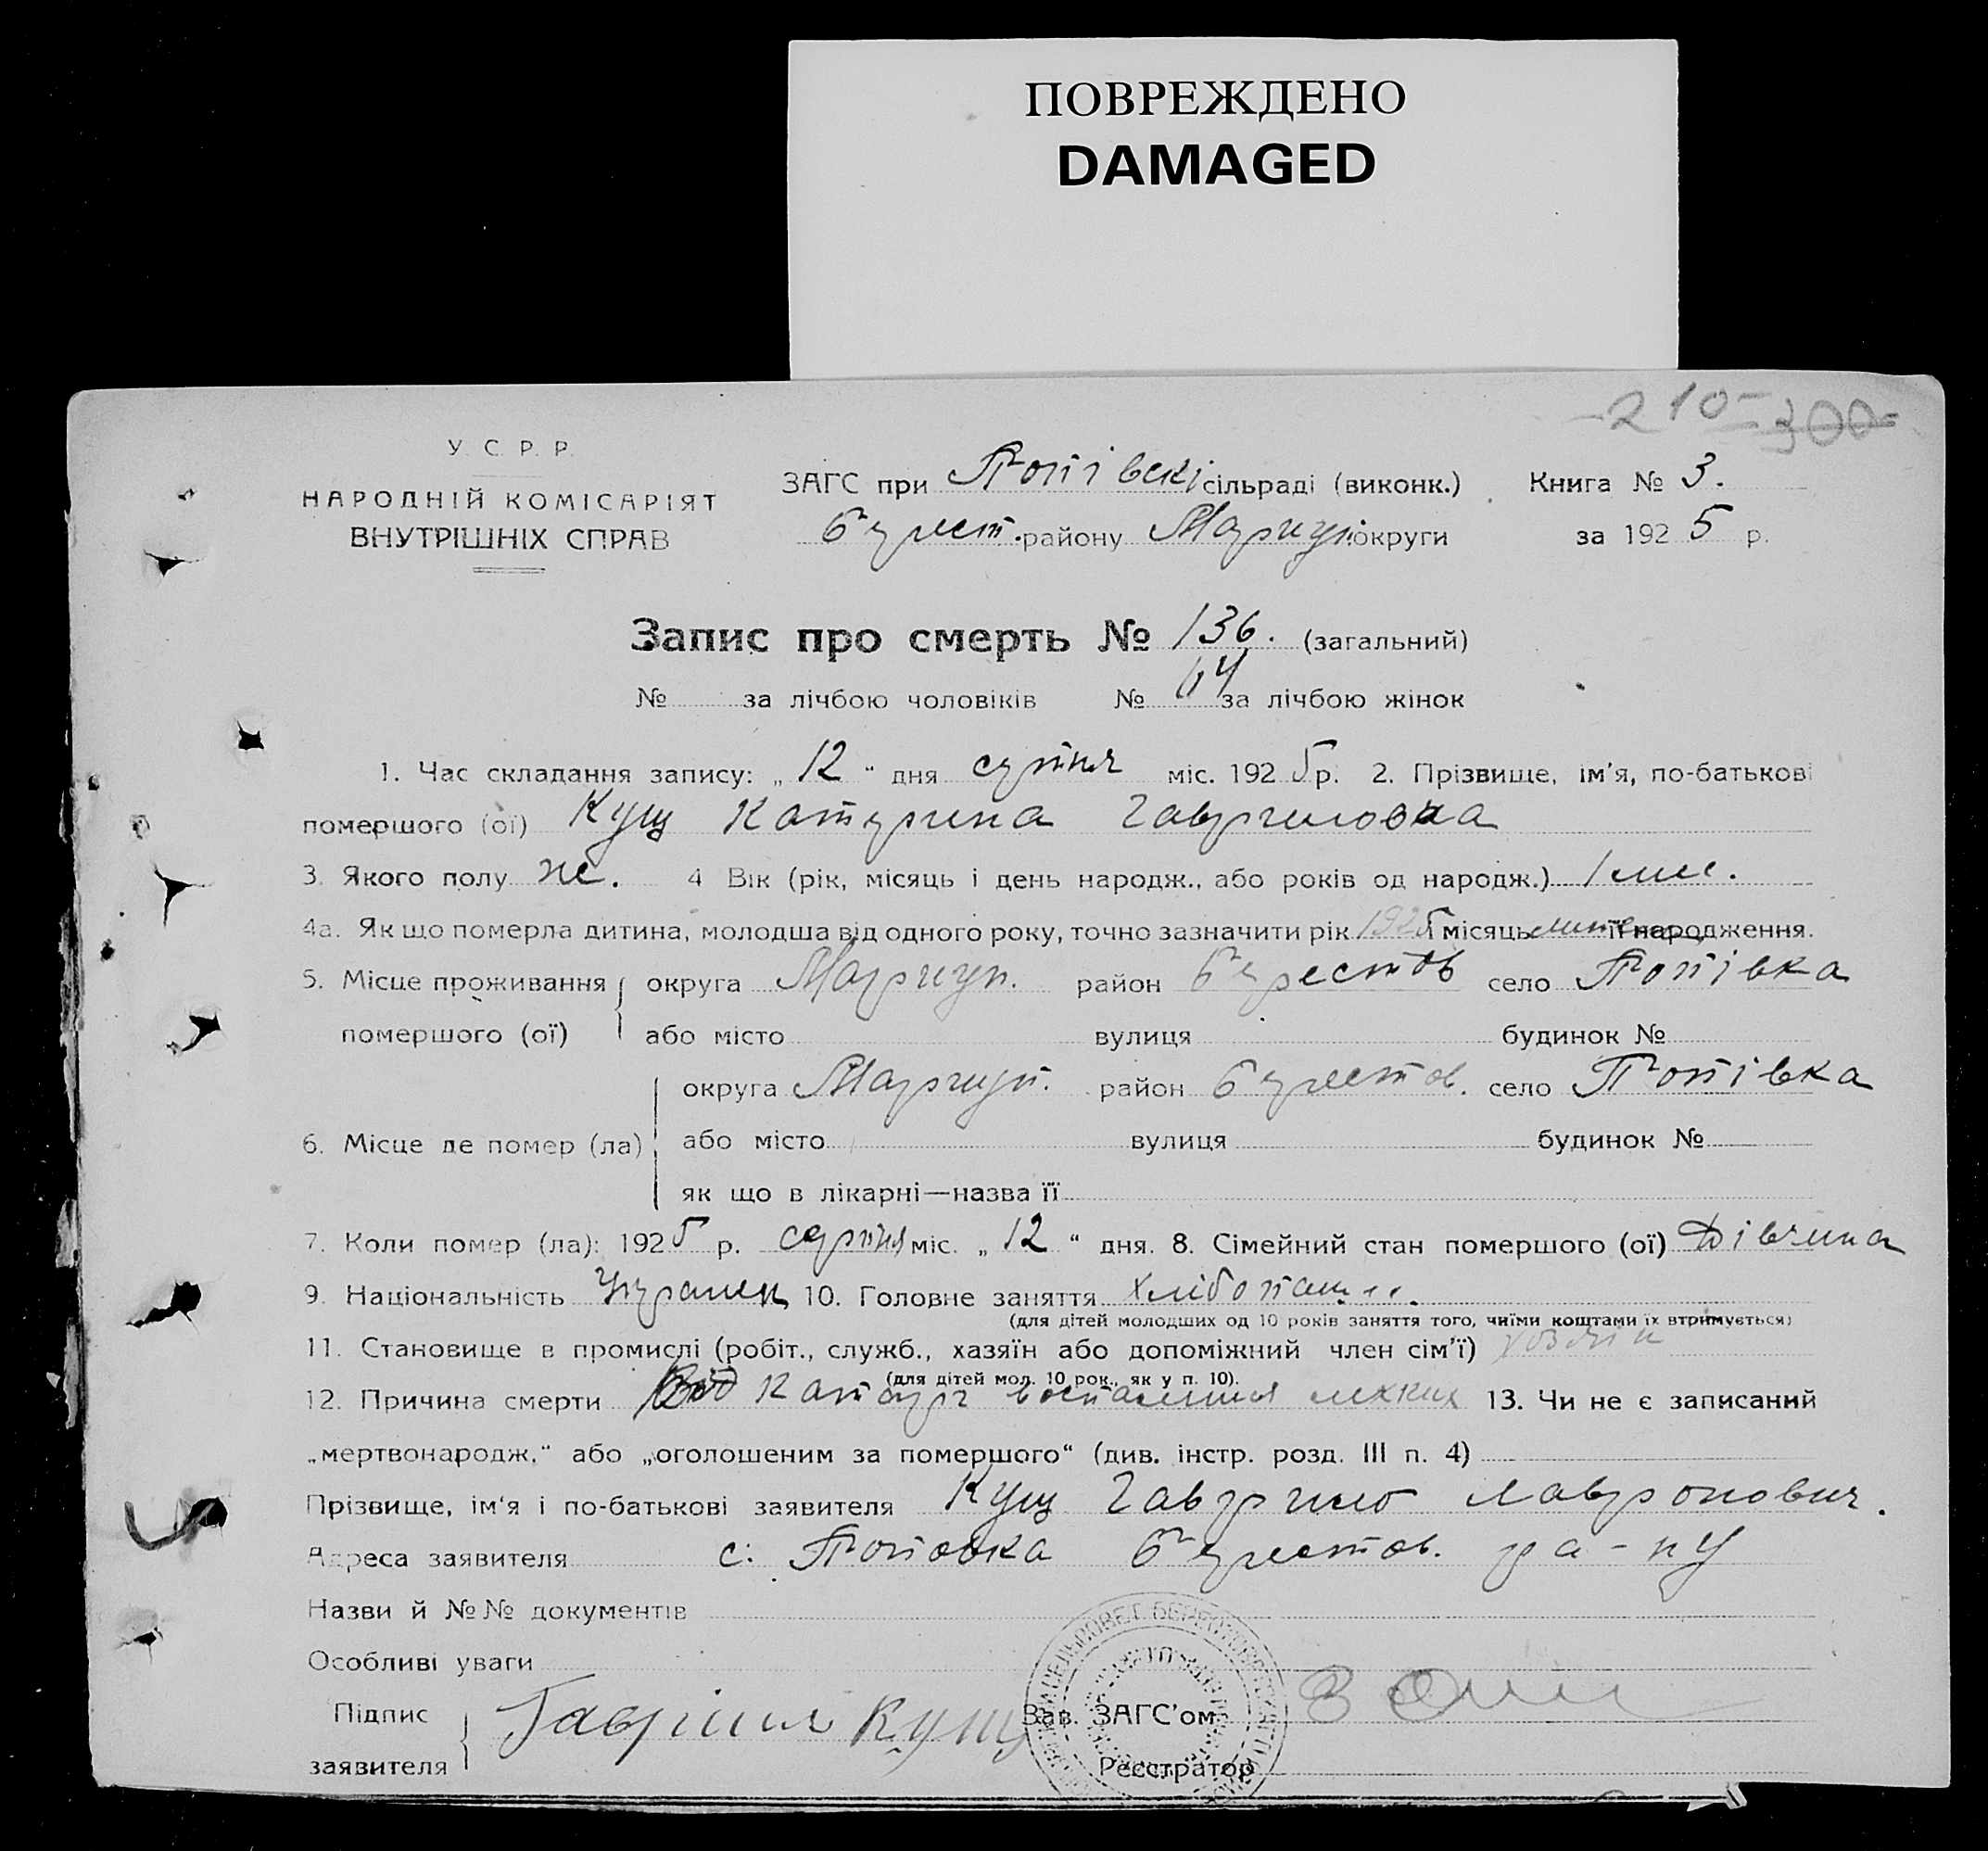 ПОВРЕЖДЕНО
DAMAGED
-210- 300-
У. С. Р. Р.
НАРОДНІЙ КОМІСАРІЯТ
ВНУТРІШНІХ СПРАВ
ЗАГС при Попівскі сільраді (виконк.) Книга № 3.
Берест. району Маріуп. округи за 1925 р.
Запис про смерть № 136. (загальний)
№ за лічбою чоловіків № 64 за лічбою жінок
1. Час складання запису: „12“ дня серпня міс. 1925 р. 2. Прізвище, ім'я, по-батькові
помершого (ої) Кущ Катерина Гавриловна
3. Якого полу же. 4 Вік (рік, місяць і день народж., або років од народж.) 1 мес.
4а. Як що померла дитина, молодша від одного року, точно зазначити рік 1925 і місяць її народження.
5. Місце проживання округа Маріуп. район Берестов село Попівка
помершого (ої) або місто вулиця будинок №
округа Маріуп. район Берестов. село Попівка
6. Місце де помер (ла) або місто вулиця будинок №
як що в лікарні—назва її
7. Коли помер (ла): 1925 р. серпня міс. „12“ дня. 8. Сімейний стан помершого (ої) Дівчина
9. Національність Украинец 10. Головне заняття
(для дітей молодших од 10 років заняття того, чиїми коштами їх втримується)
11. Становище в промислі (робіт., служб., хазяїн або допоміжний член сім'ї) хозяїн
(для дітей мол. 10 рок., як у п. 10).
12. Причина смерти Від воспаления лехких 13. Чи не є записаний
„мертвонародж,“ або „оголошеним за помершого“ (див. інстр. розд. III п. 4)
Прізвище, ім'я і по-батькові заявителя Кущ Гаврило Лавронович.
Адреса заявителя с. Поповка Берестов. ра-ну
Назви й №№ документів
Особливі уваги
Підпис
заявителя Гавріил Кущ
Зав. ЗАГС'ом
Реєстратор